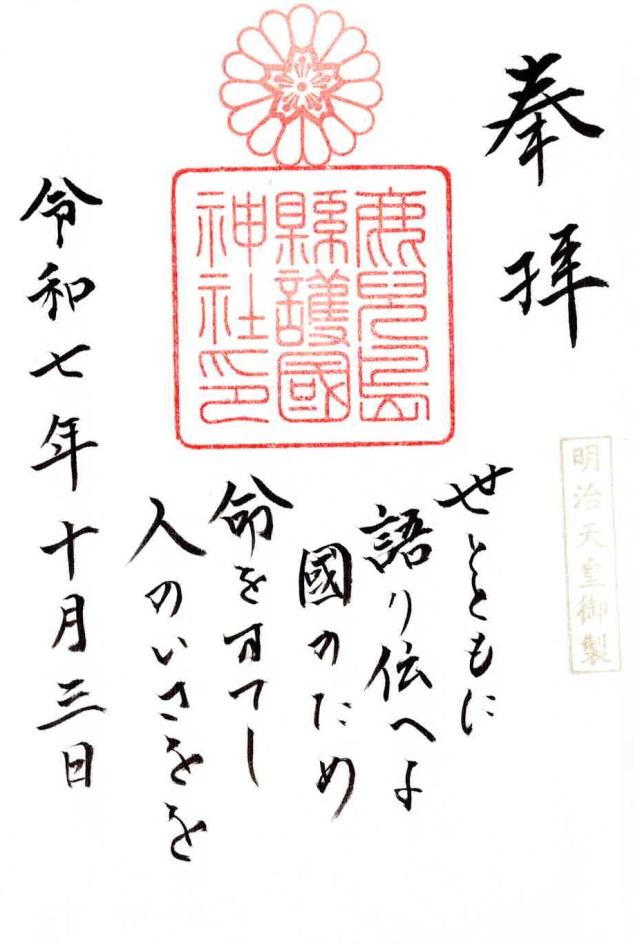 奉拝
鹿兒島
縣護國
神社印
明治天皇御製
世とともに
語り伝へよ
國のため
命をすてし
人のいさをを
令和七年十月三日